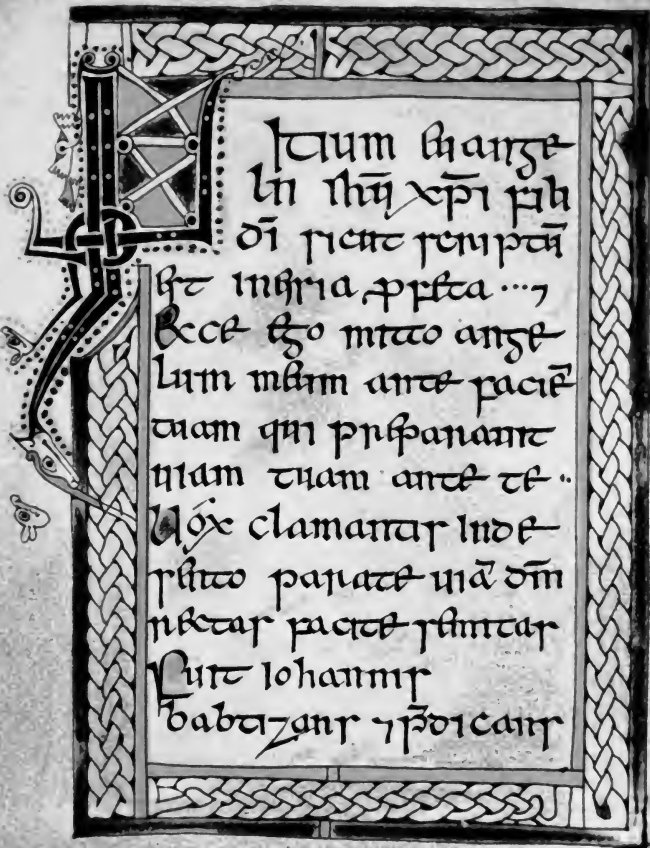 INitium euange
lii ihū xp̄i filii
dī sicut scriptū
est in essia ꝓfeta ...⁊
Ecce ego mitto ange
lum meum ante faciē
tuam qui preparauit
uiam tuam ante te ..
Uóx clamantis in de
serto parate uiā dn̄i
rectas facite semitas
Fuit iohannis
babtizans ⁊ p̄dicans